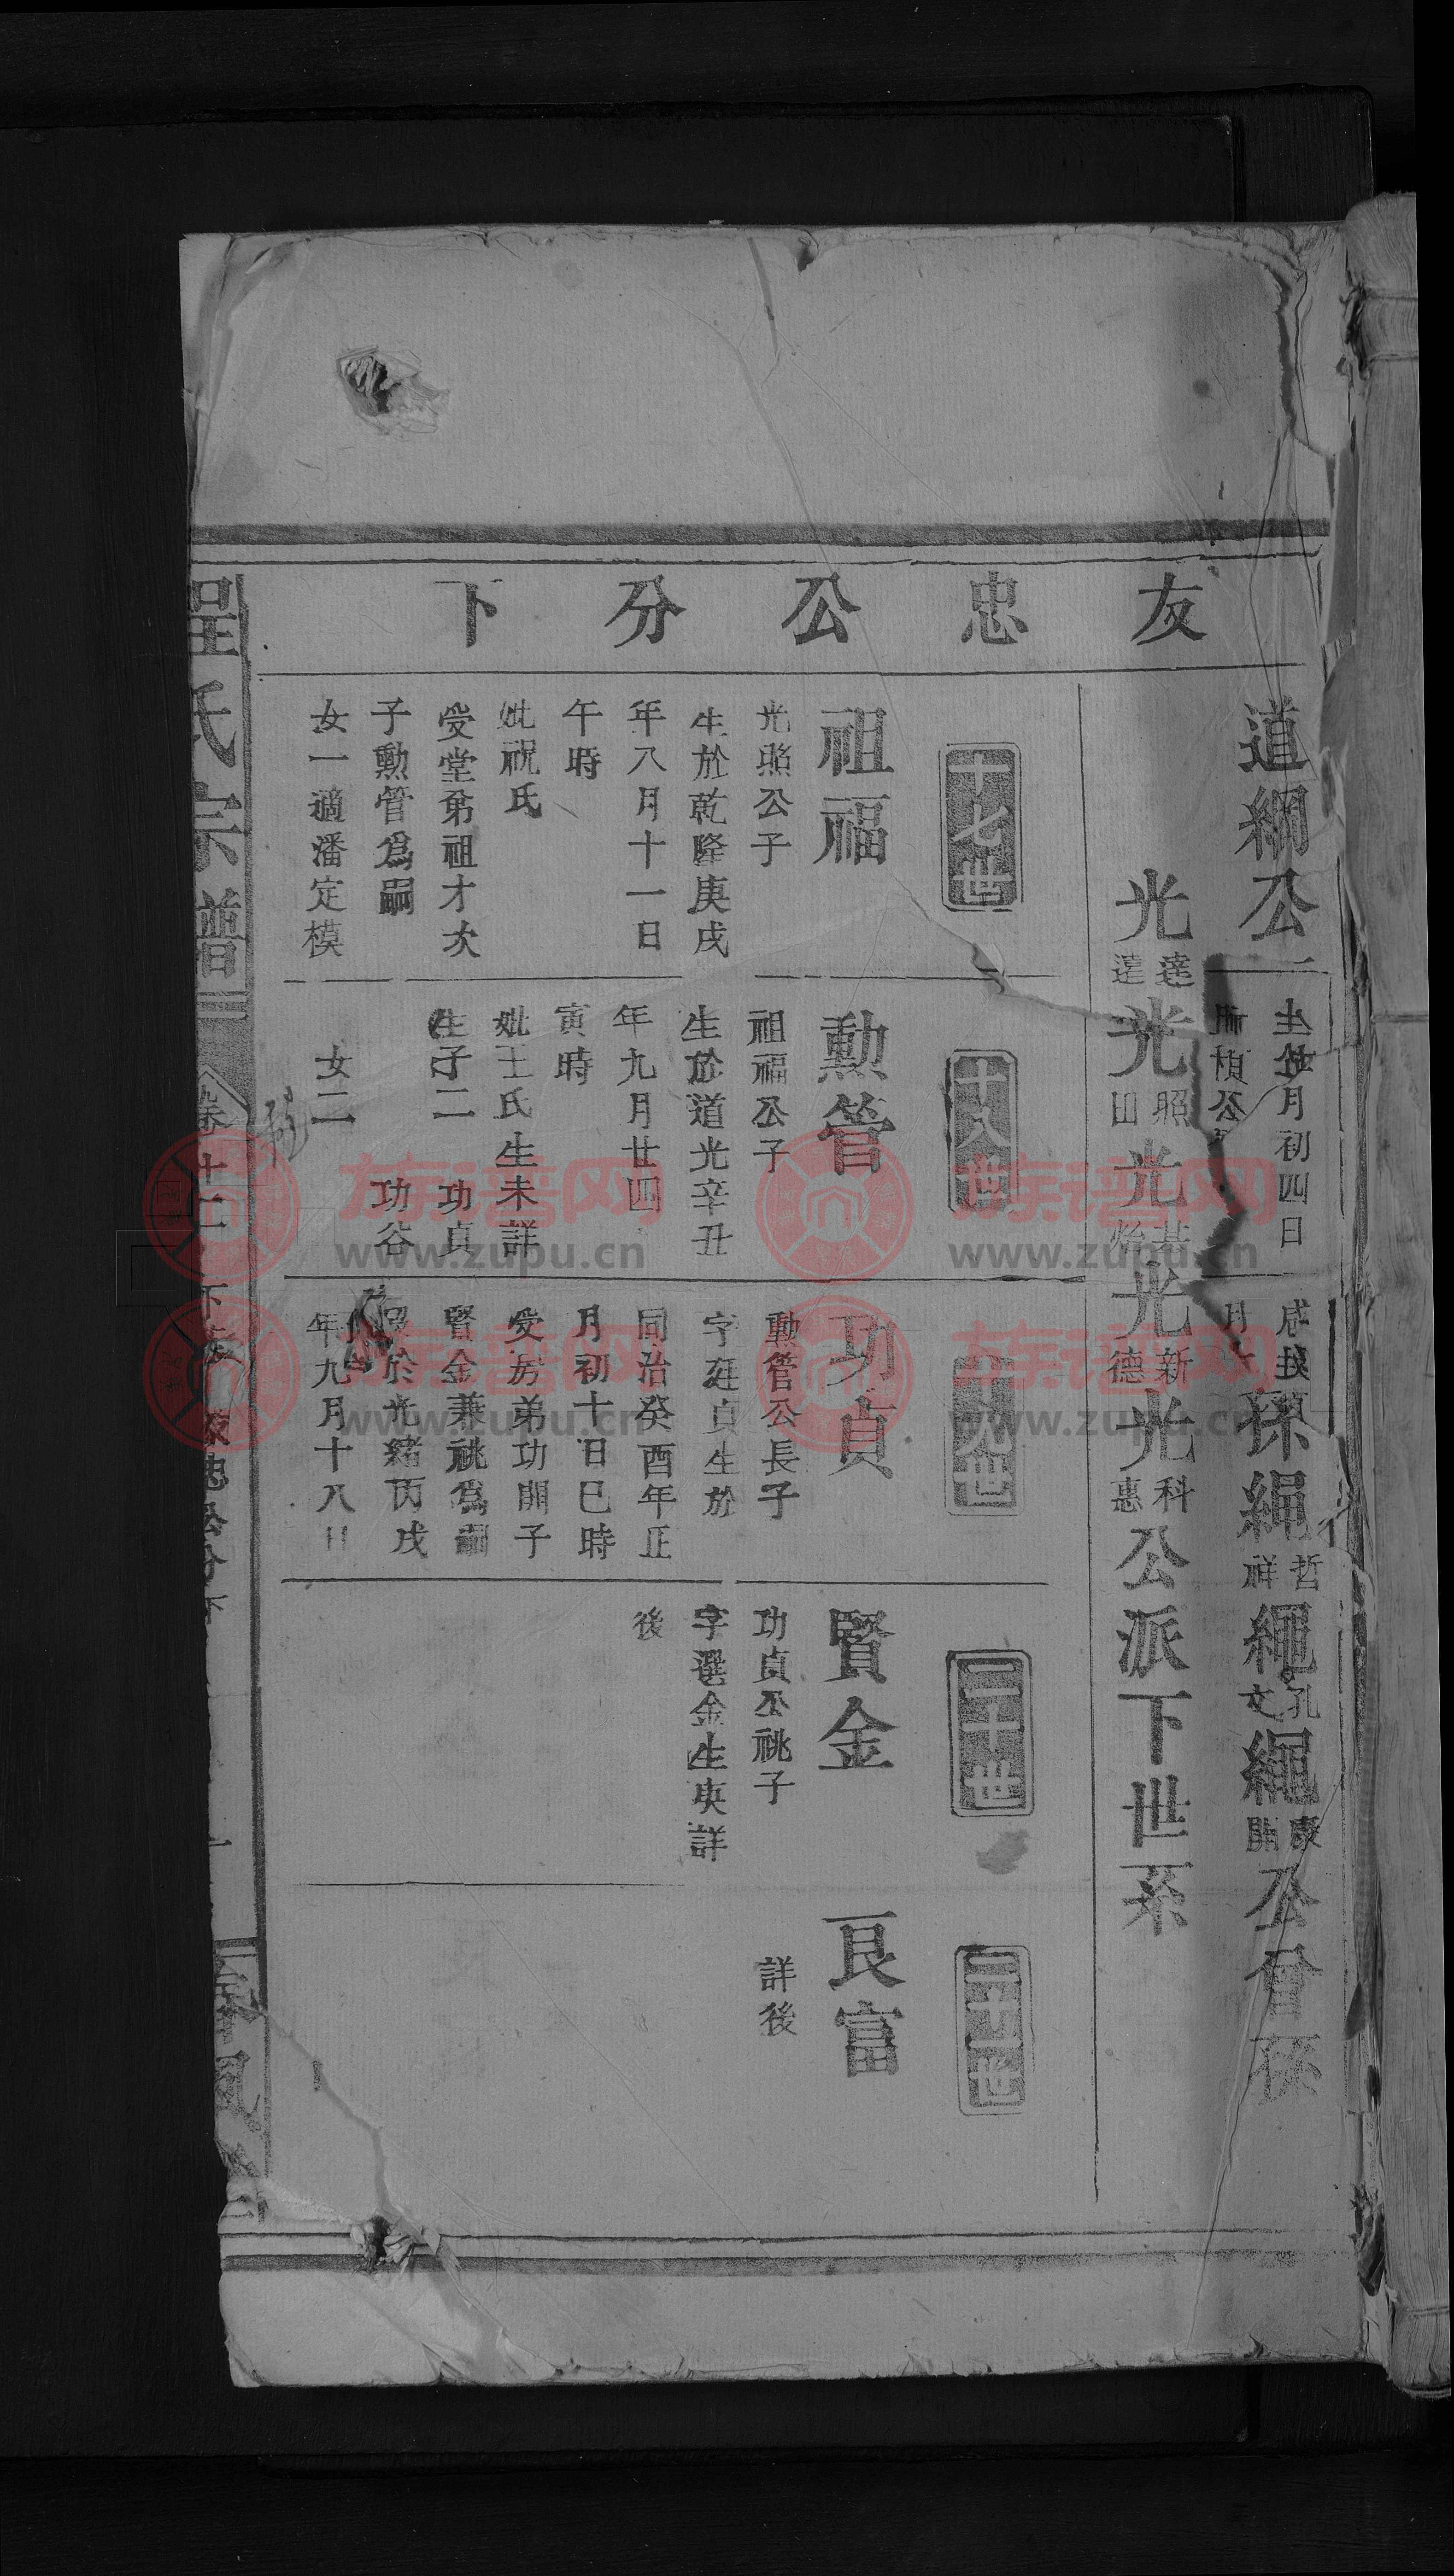 友忠公分下
道綱公
孫繩哲祥繩孔文繩公曾孫
光達光照光光新德光科惠公派下世系
十七世
祖福
光照公子
生於乾隆庚戌
年八月十一日
午時
妣祝氏
受堂弟祖才次
子勳管爲嗣
女一適潘定模
十八世
勳管
祖福公子
生於道光辛丑
年九月廿四
寅時
妣王氏生未詳
生子二 功貞
功谷
女二
十九世
功貞
勳管公長子
字廷貞生於
同治癸酉年正
月初十日巳時
受房弟功開子
賢金兼祧爲嗣
於光緒丙戌
年九月十八日
二十世
賢金
功貞公祧子
字選金生庚詳
後
二十一世
艮富
詳後
程氏宗譜
友忠公分下
族谱网
www.zupu.cn
族谱网
www.zupu.cn
族谱网
www.zupu.cn
族谱网
www.zupu.cn